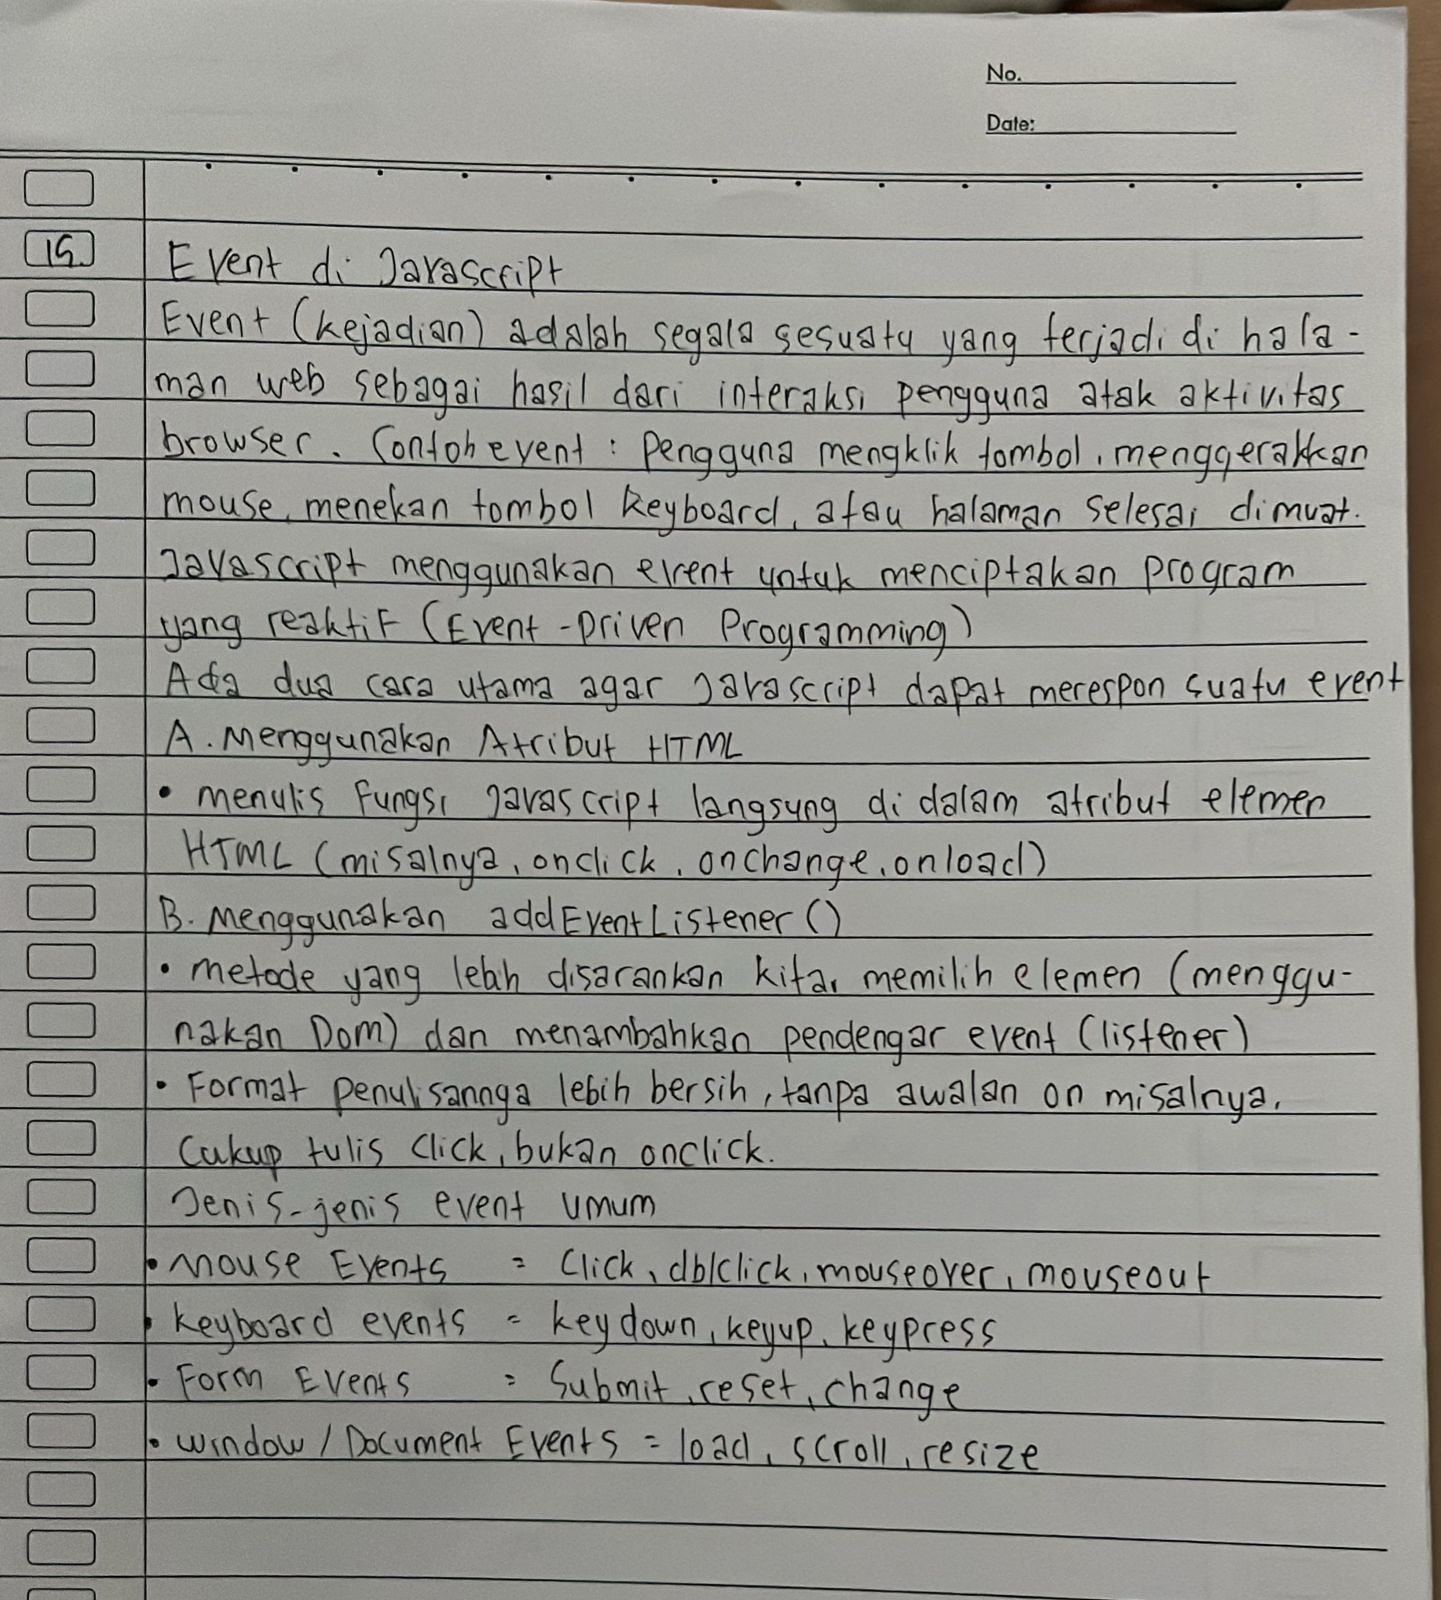 No.
Date:
15. Event di Javascript
Event (kejadian) adalah segala sesuatu yang terjadi di hala-
man web sebagai hasil dari interaksi pengguna atak aktivitas
browser. Contoh event : Pengguna mengklik tombol, menggerakkan
mouse, menekan tombol keyboard, atau halaman selesai dimuat.
Javascript menggunakan event untuk menciptakan program
yang reaktif (Event-Driven Programming)
Ada dua cara utama agar Javascript dapat merespon suatu event
A. Menggunakan Atribut HTML
• menulis fungsi Javascript langsung di dalam atribut elemen
HTML (misalnya, onclick, onchange, onload)
B. Menggunakan addEventListener ()
• metode yang lebih disarankan kita, memilih elemen (menggu-
nakan Dom) dan menambahkan pendengar event (listener)
• Format penulisannga lebih bersih, tanpa awalan on misalnya,
Cukup tulis Click, bukan onclick.
Jenis-jenis event umum
• Mouse Events = Click, dblclick, mouseover, mouseout
• Keyboard events = keydown, keyup, keypress
• Form Events = Submit, reset, change
• Window / Document Events = load, scroll, resize